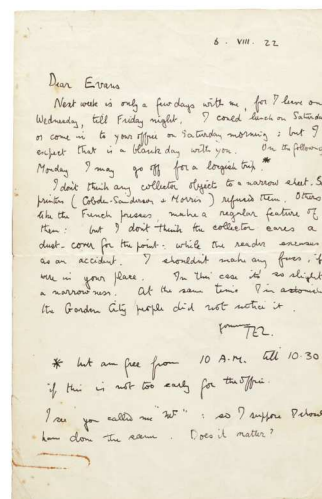 6 . VIII . 22
Dear Evans
Next week is only a few days with me, for I leave on
Wednesday, till Friday night. I could lunch on Saturda
or come in to your office on Saturday morning : but I
expect that is a blank day with you. On the followin
Monday I may go off for a longish trip. *
I don't think any collector objects to a narrow sheet. S
printers (Cobden-Sanderson + Morris) refused them. Others
like the French presses make a regular feature of
them : but I don't think the collector cares a
dust-cover for the point : while the reader excuses
as an accident. I shouldn't make any fuss, if
were in your place. In this case it's so slight
a narrowness. At the same time I'm astonish
the Garden City people did not notice it.
Yours
TEL.
* but am free from 10 A.M. till 10.30
if this is not too early for the office.
I see you called me : so I suppose I shoul
have done the same. Does it matter?